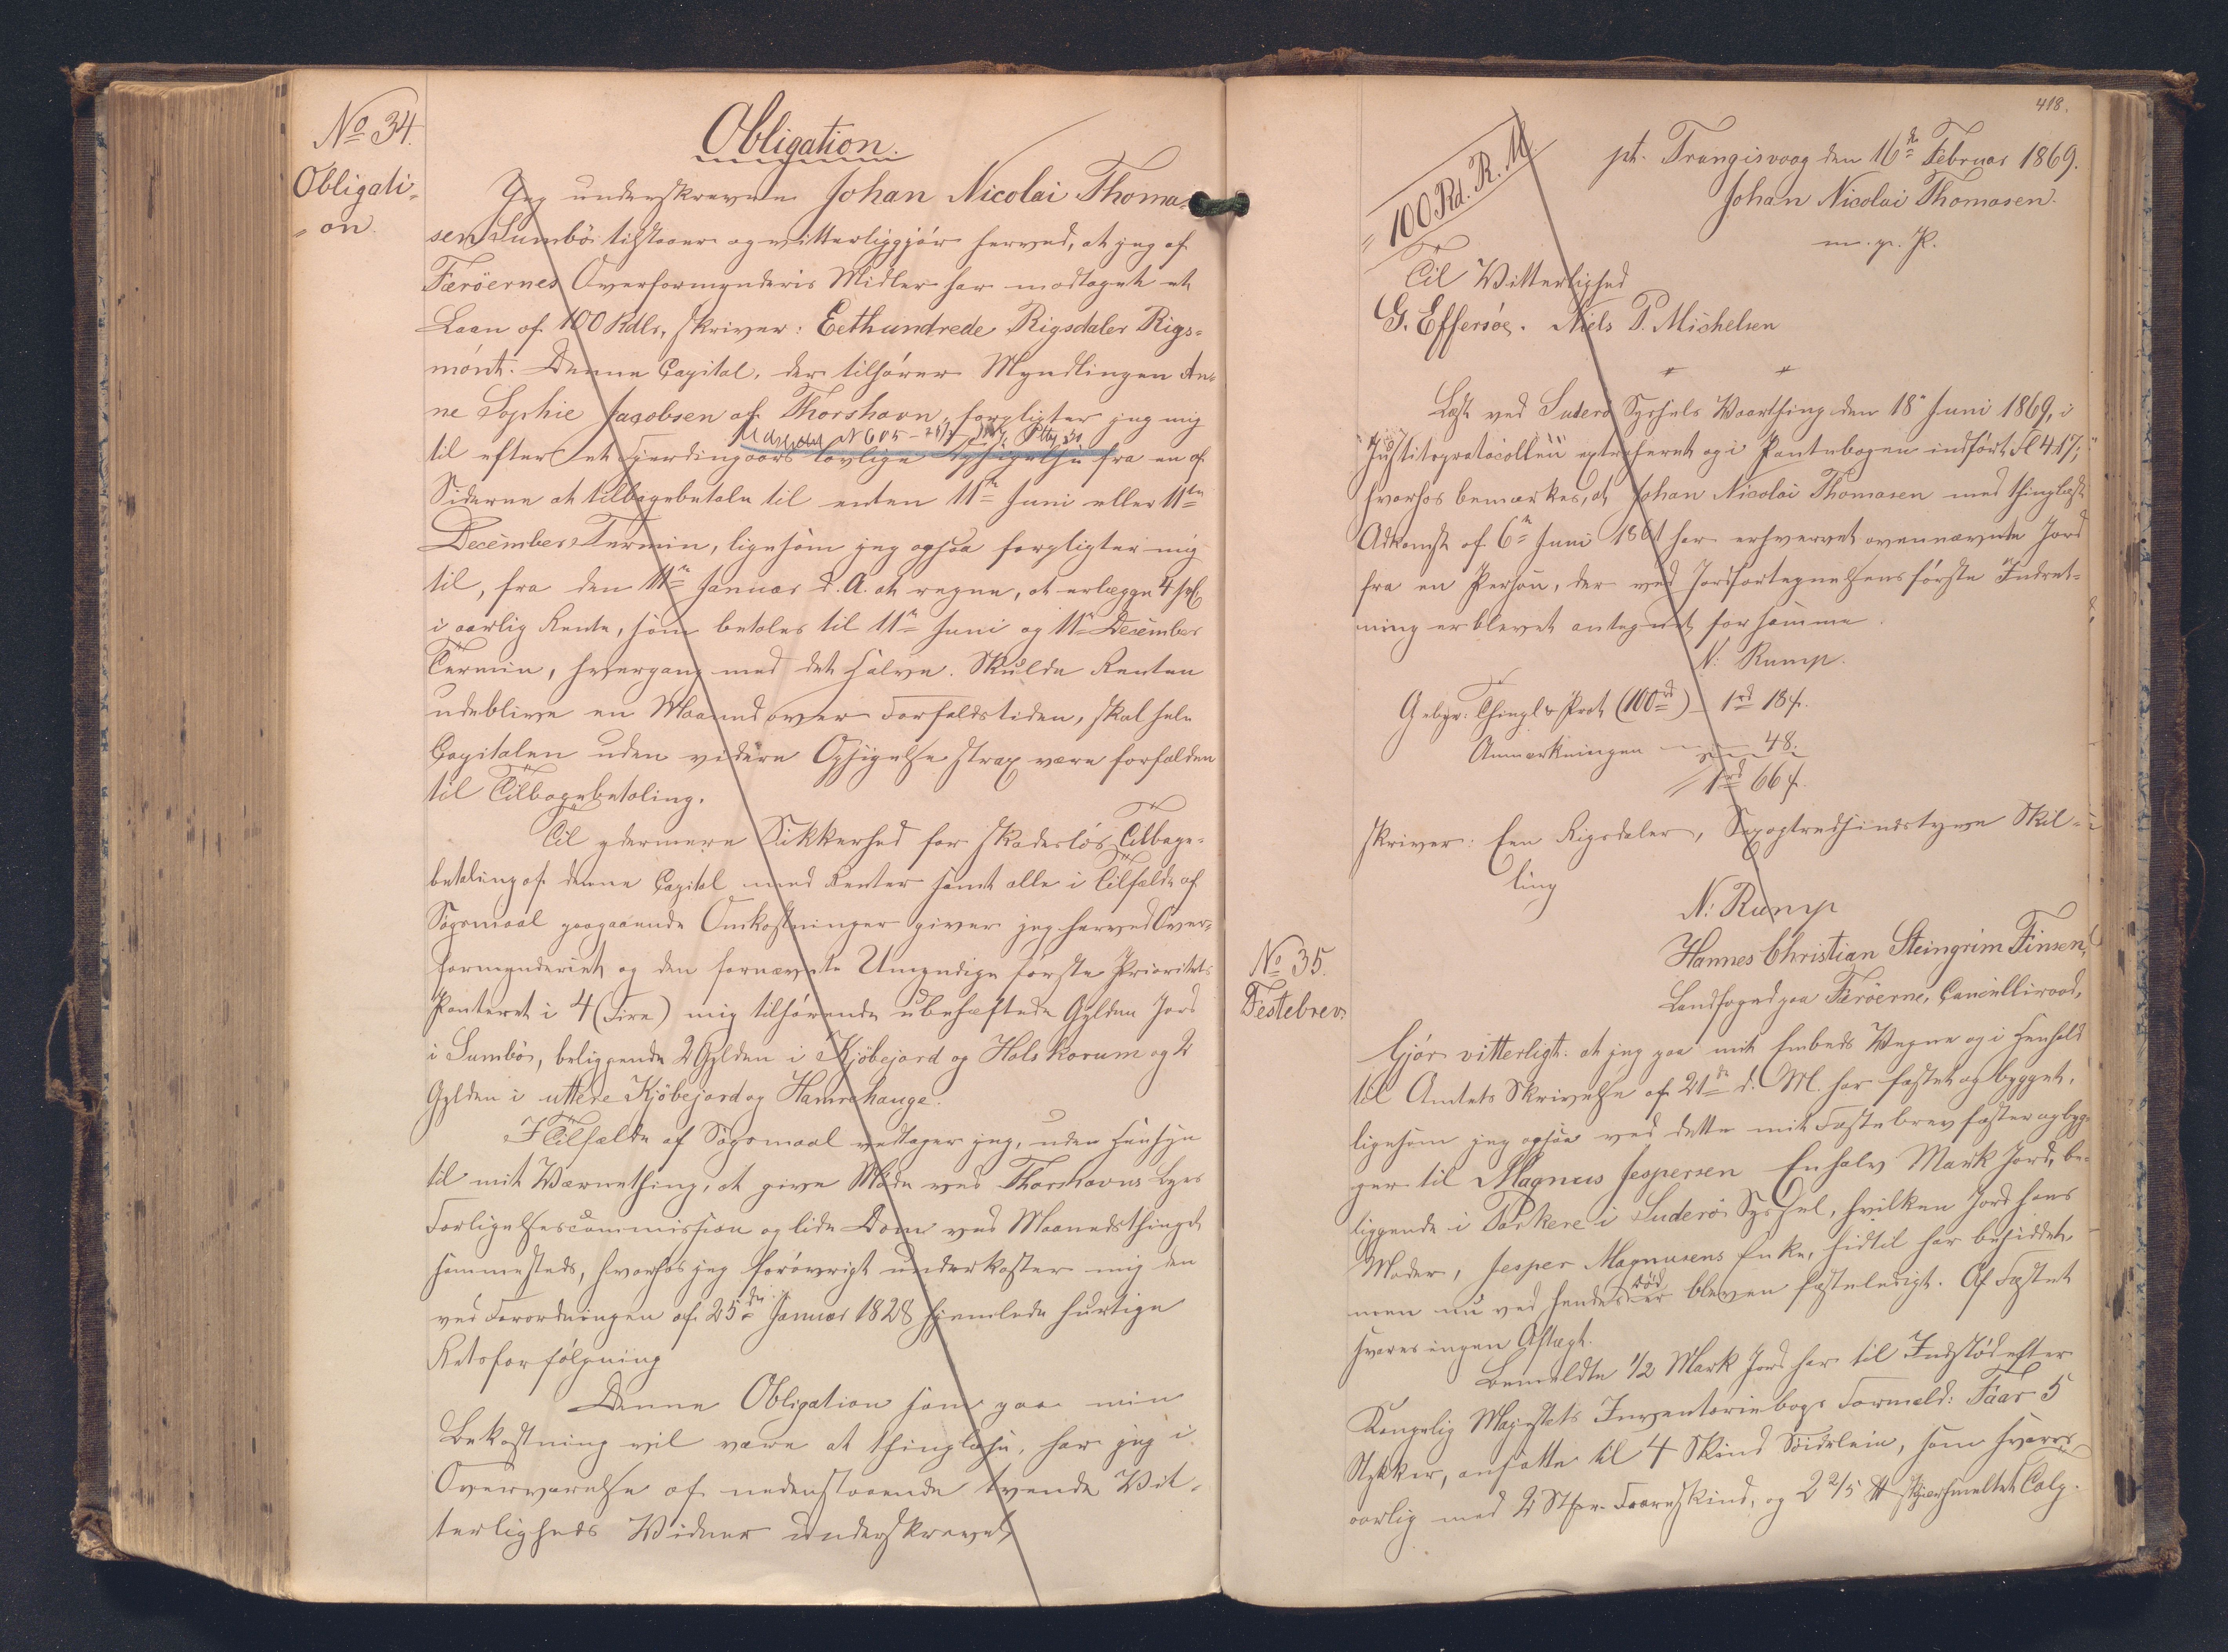 No 34.
Obligati-
on.
Obligation.
Jeg underskrevne Johan Nicolai Thoma-
sen Sumbö tilstaaer og vitterliggjör herved, at jeg af
Færöernes Overformynderis Midler har modtaget et
Laan af 100 Rdlr, skriver: Eethundrede Rigsdaler Rigs-
mönt. Denne Capital, der tilhörer Myndlingen An-
ne Sophie Jacobsen af Thorshavn, forpligter jeg mig
til efter et Fjerdingaars lovlige Opsigelse fra en af
Siderne at tilbagebetale til enten 11te Juni eller 11te
December Termin, ligesom jeg ogsaa forpligter mig
til, fra den 11te Januar d. A. at regne, at erlægge 4 pC
i aarlig Rente, som betales til 11te Juni og 11te December
Termin, hvergang med det halve. Skulde Renten
udeblive en Maaned over Forfaldstiden, skal hele
Capitalen uden videre Opsigelse strax være forfalden
til Tilbagebetaling.
Til ydermere Sikkerhed for skadeslös Tilbage-
betaling af denne Capital med Renter samt alle i Tilfælde af
Sögsmaal paagaaende Omkostninger giver jeg herved Over-
formynderiet og den fornævnte Umyndige förste Prioritets
Panteret i 4 (Fire) mig tilhörende ubehæftede Gylden Jord
i Sumbö, beliggende 2 Gylden i Kjöbejord og Halskorum og 2
Gylden i uttere Kjöbejord og Hamrehauge.
I Tilfælde af Sögsmaal vedtager jeg, uden Hensyn
til mit Værnething, at give Möde ved Thorshavns Byes
Forligelsescommission og lide Dom ved Maanedsthinget
sammesteds, hvorhos jeg forövrigt underkaster mig den
ved Forordningen af 25de Januar 1828 hjemlede hurtige
Retsforfölgning
Denne Obligation som paa min
Bekostning vil være at thinglæse, har jeg i
Overværelse af nedenstaaende tvende Vit-
terligheds Vidner underskrevet
418.
100 Rd. R. M.
pt. Trangisvaag den 16de Februar 1869.
Johan Nicolai Thomasen.
m. p. P.
Til Vitterlighed
G. Effersöe. Niels P. Michelsen
Læst ved Suderö Syssels Vaarthing den 18de Juni 1869, i
Justitsprotocollen extraheret og i Pantebogen indfört Fl 417;
hvorhos bemærkes, at Johan Nicolai Thomasen med thinglæst
Adkomst af 6te Juni 1861 har erhvervet ovennævnte Jord
fra en Person, der ved Jordfortegnelsens förste Indret-
ning er blevet antegnet for samme.
N: Rump.
Gebyr: Thingl & Prot (100rd) - 1rd 18s.
Anmærkningen 48.
1rd 66s.
skriver: Een Rigsdaler, Sexogtredsindstyve Skil-
ling
N: Rump
No 35.
Festebrev.
Hannes Christian Steingrim Finsen,
Landfoged paa Færöerne, Cancelliraad,
Gjör vitterligt: at jeg paa mit Embeds Vegne og i Henhold
til Amtets Skrivelse af 21de d. M. har fæstet og bygget,
ligesom jeg ogsaa ved dette mit Fæstebrev fæster og byg-
ger til Magnus Jespersen En halv Mark Jord, be-
liggende i Porkere i Suderö Syssel, hvilken Jord hans
Moder, Jesper Magnusens Enke, hidtil har besiddet,
men nu ved hendes Död er bleven fæsteledigt. Af Fæstet
svares ingen Aftægt.
Bemeldte 1/2 Mark Jord har til Indstöd efter
Kongelig Majestæts Inventariebogs Formeld: Faar 5
Stykker, ansatte til 4 Skind Söideleie, som svares
aarlig med 2 Stkr. Faareskind, og 2 2/5 ℔ skjærsmeltet Talg.